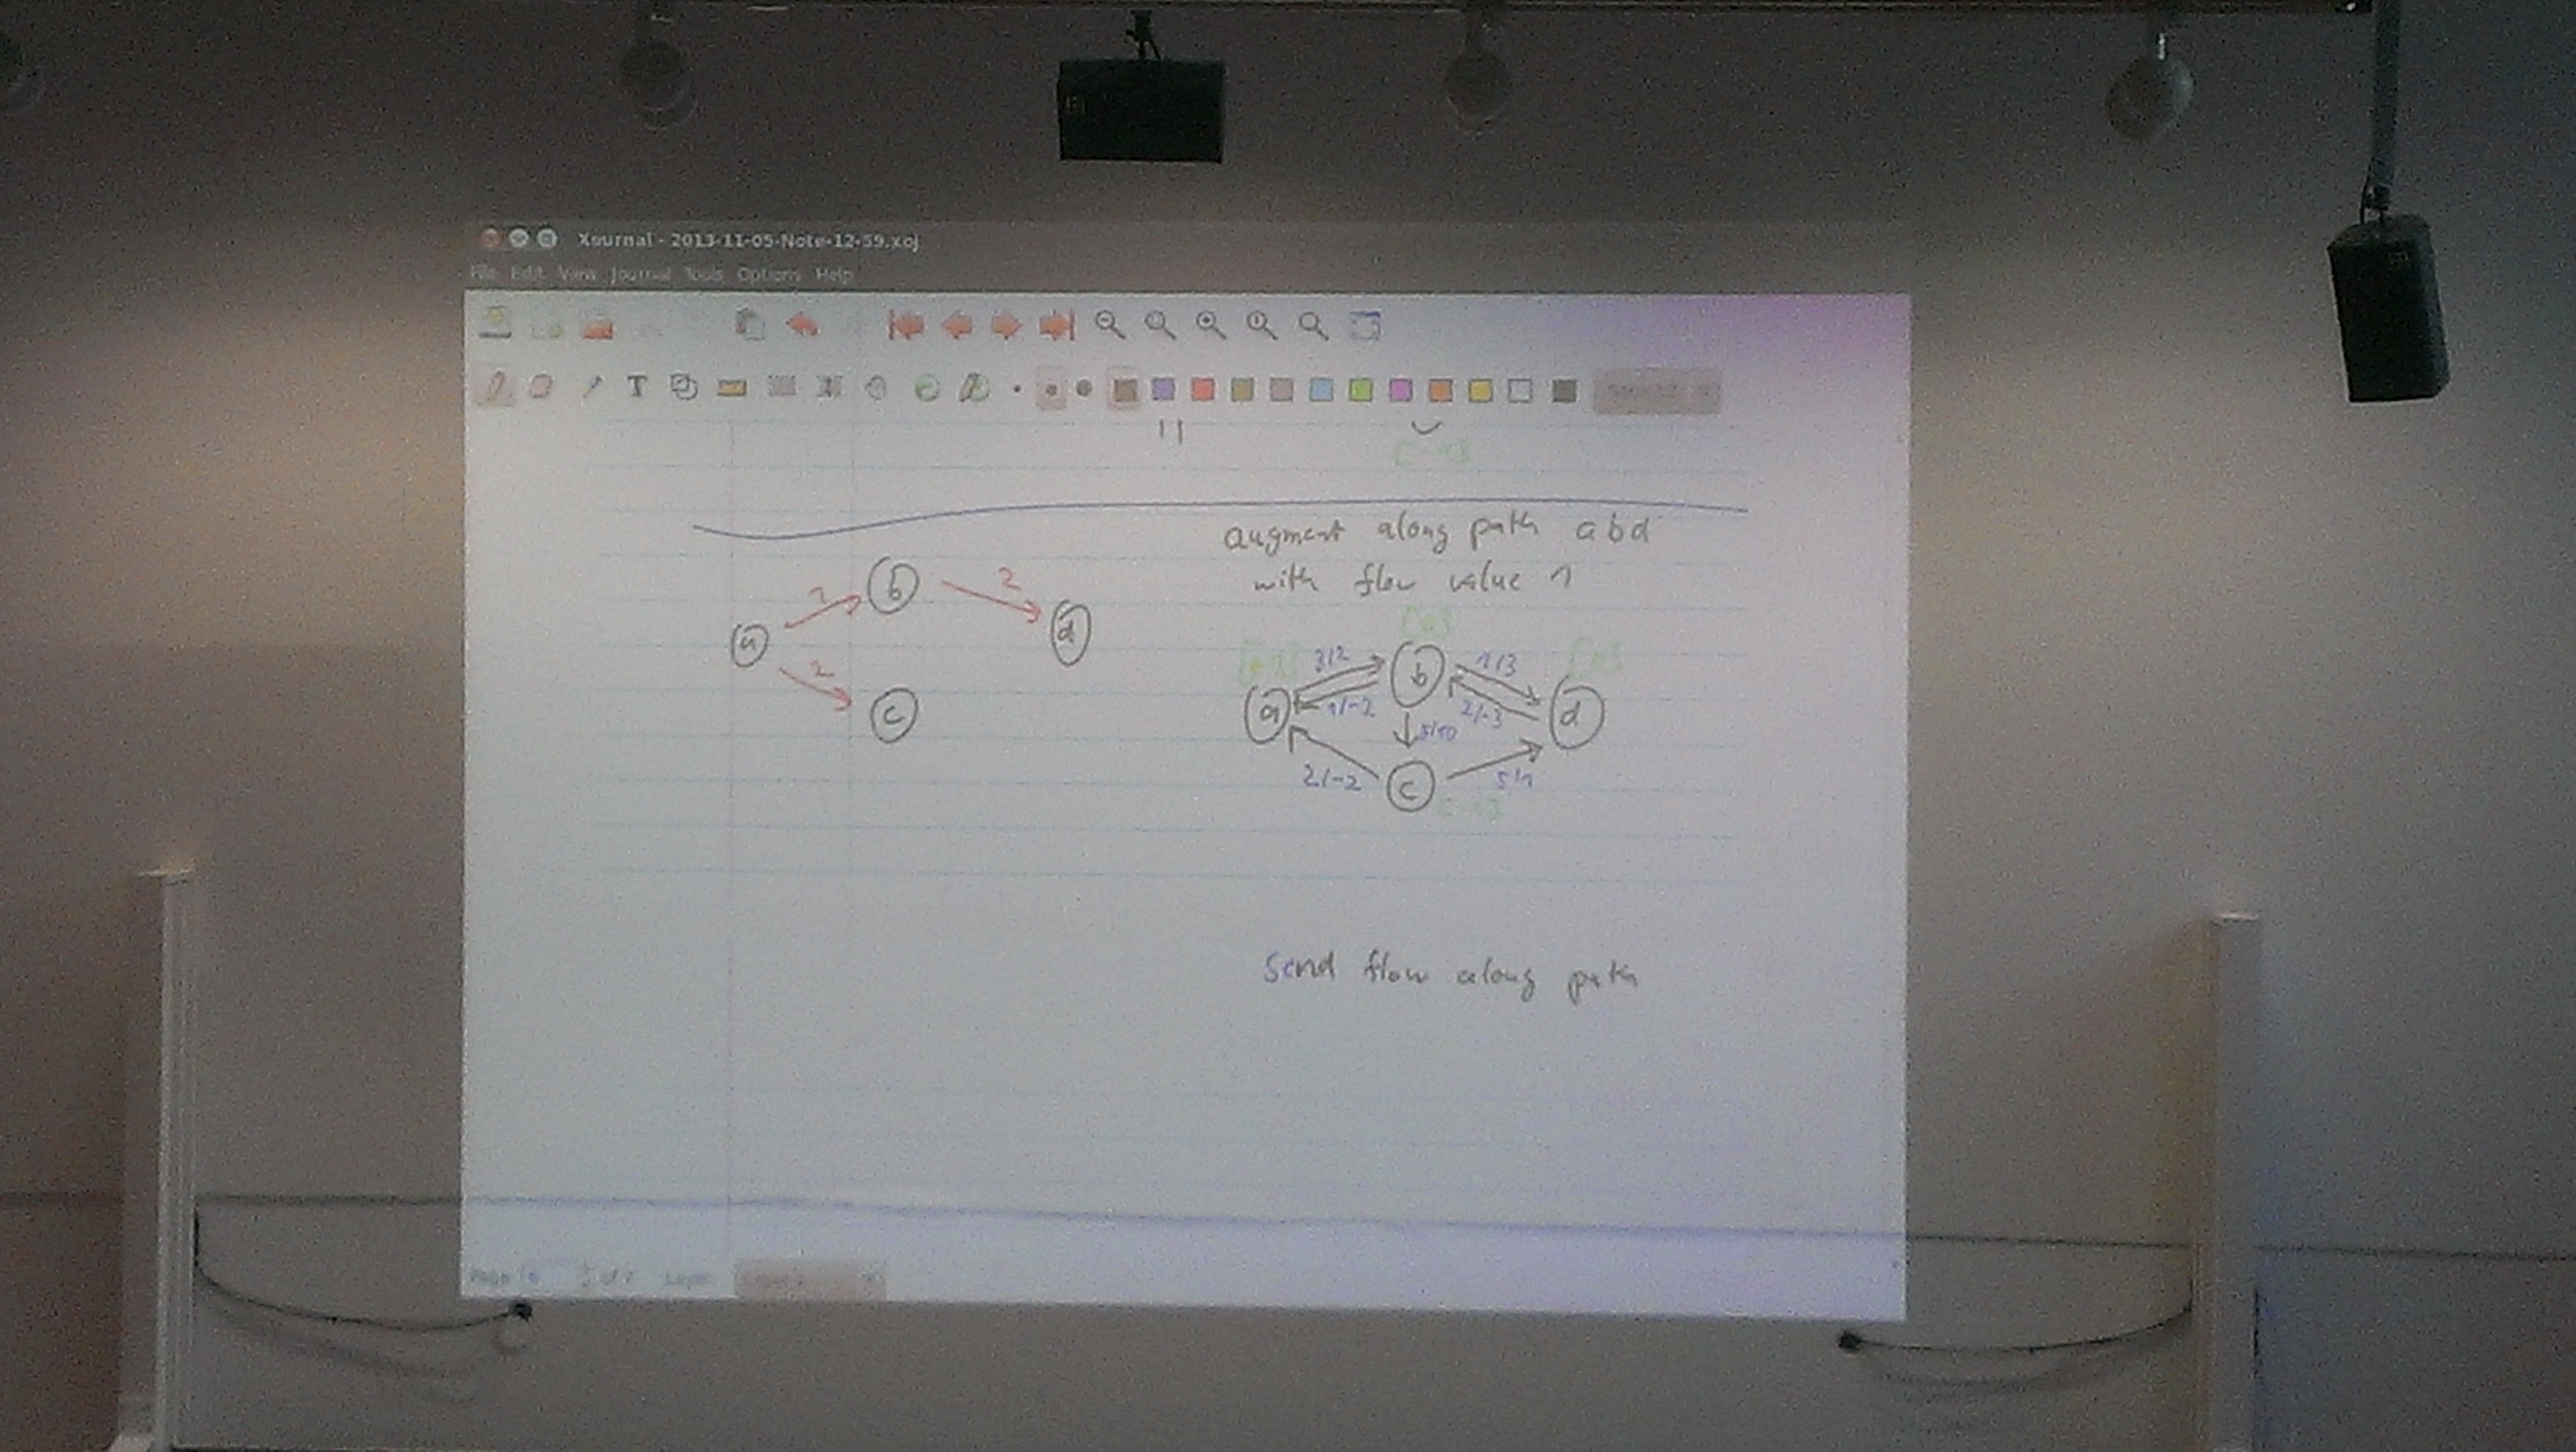 Xournal - 2013-11-05-Note-12-59.xoj
File Edit View Journal Tools Options Help
T
augment along path abd
with flow value 1
b
2
d
a
2
c
3/2
b
1/3
a
1/-2
2/-3
d
2/-2
c
5/1
send flow along path
Page of 7 Layer